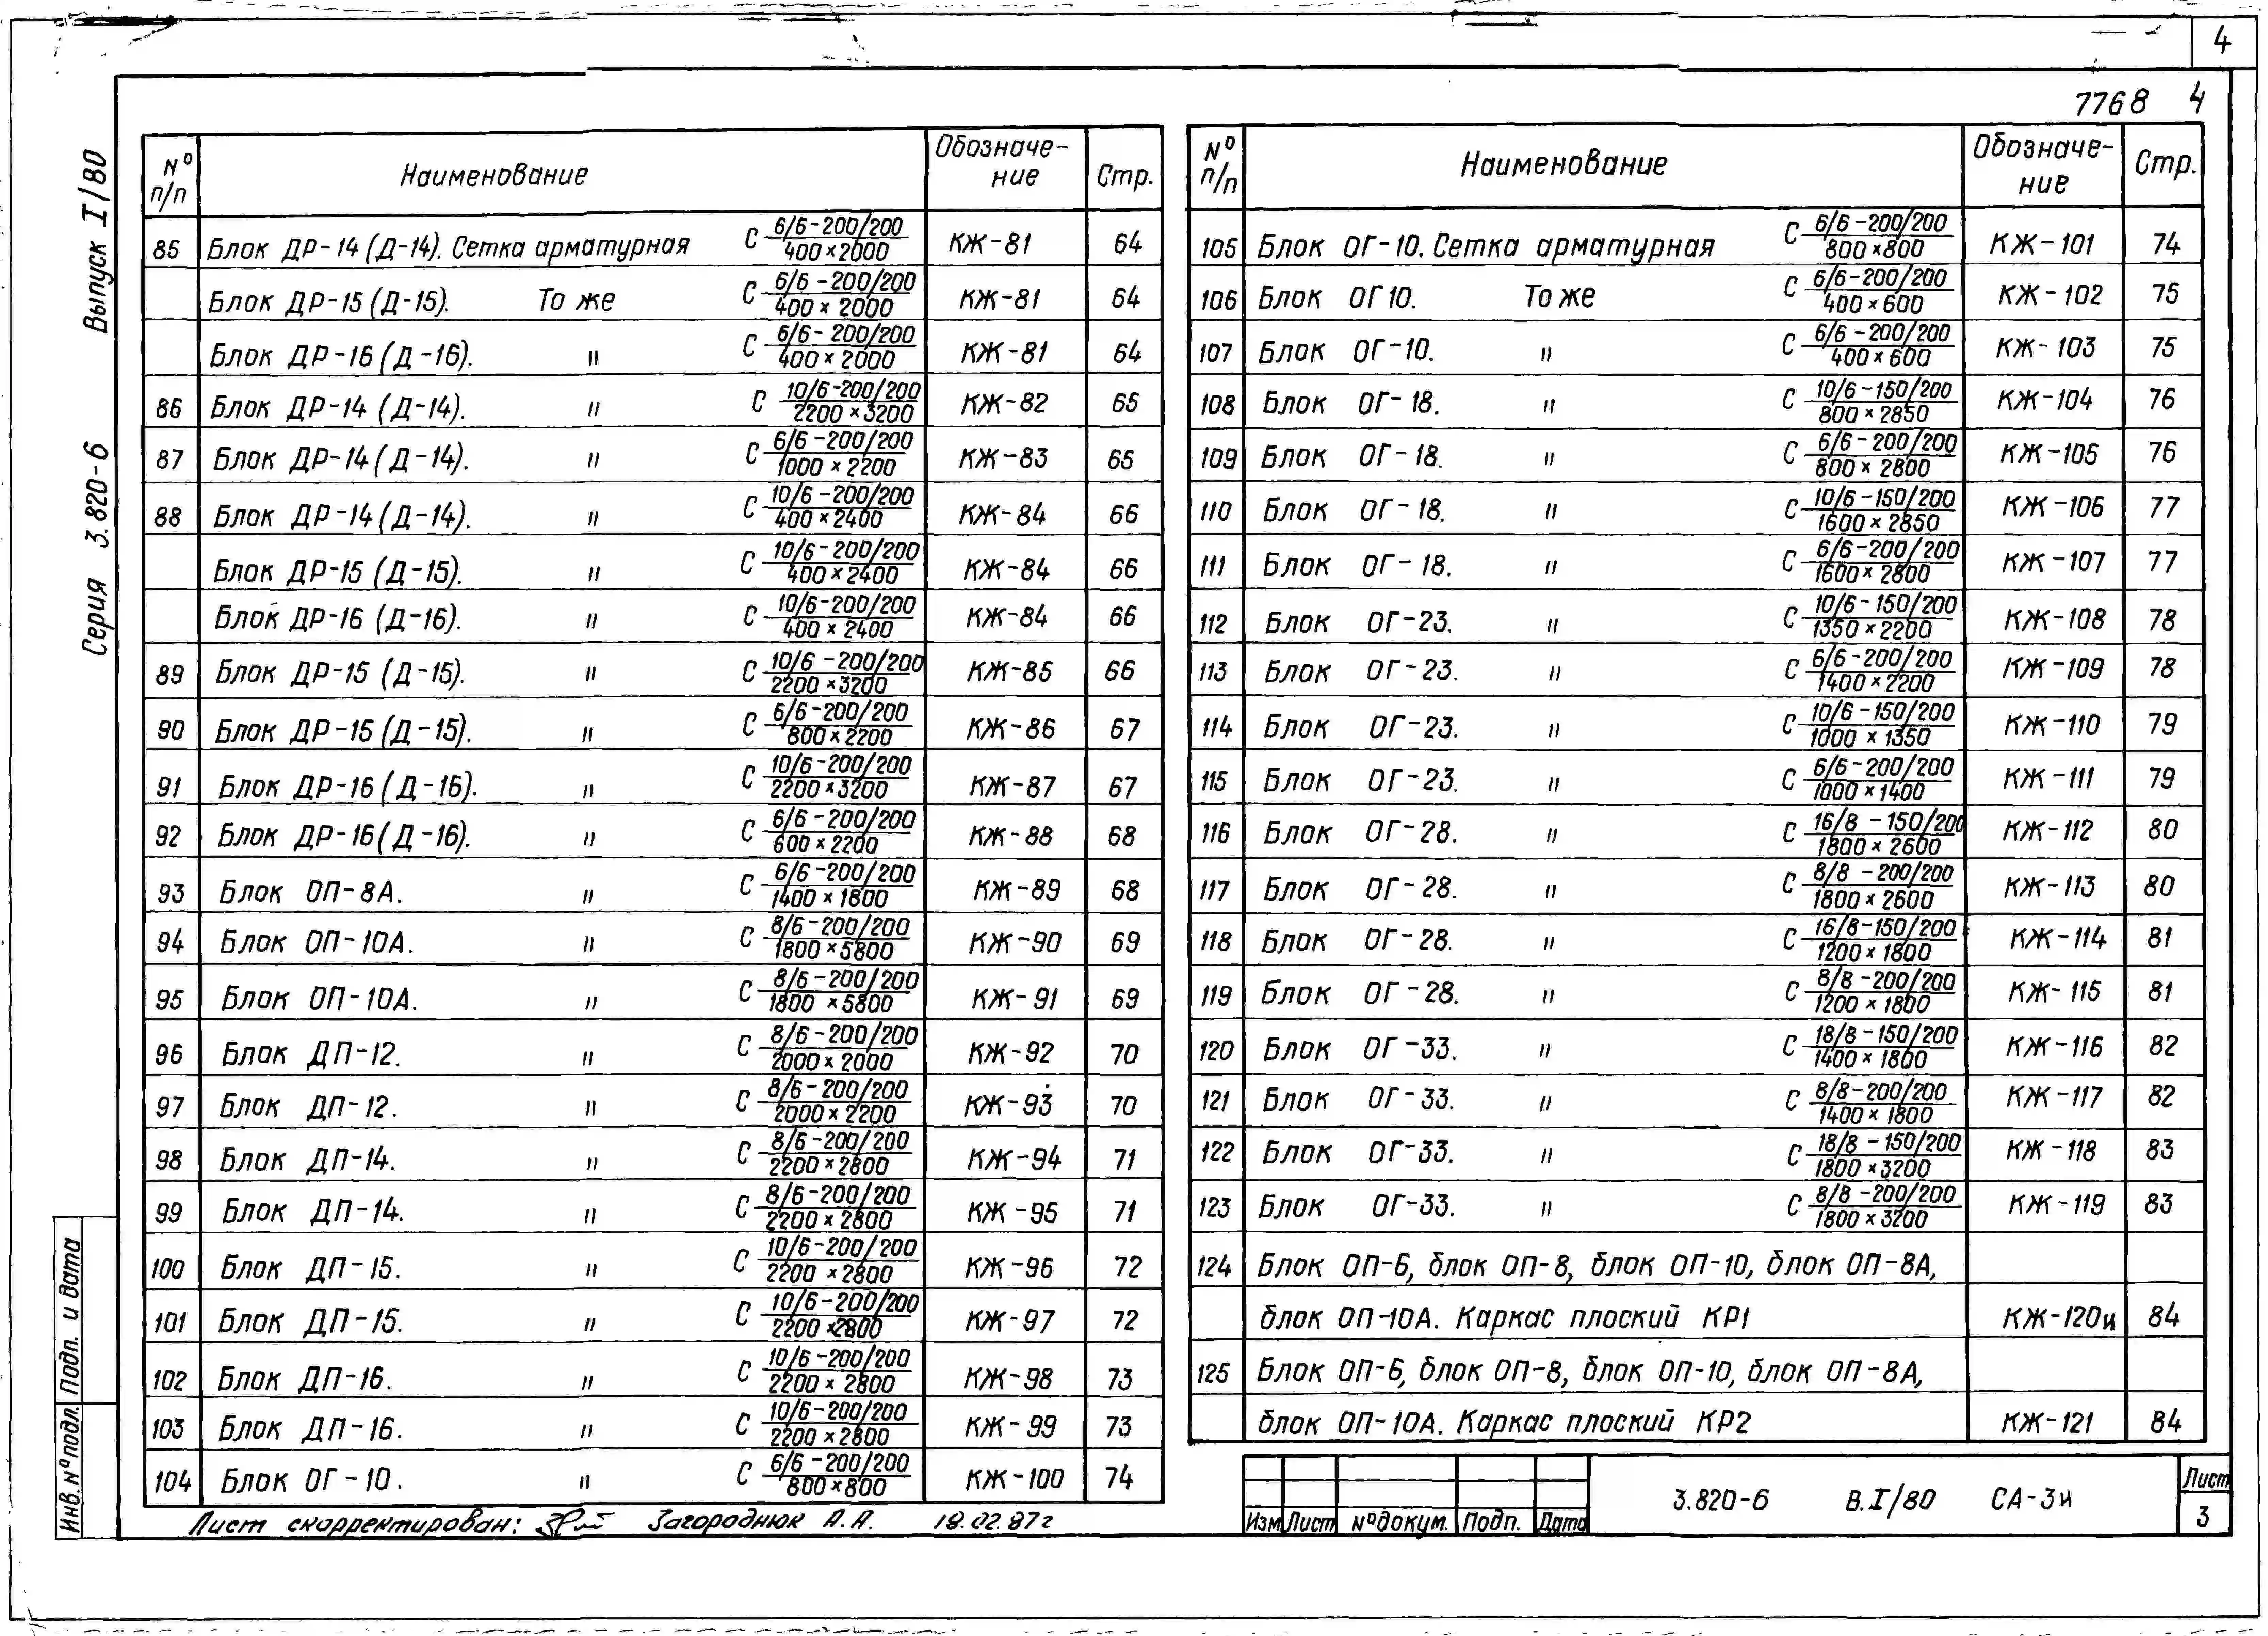 4
7768 4
Серия 3.820-6 Выпуск I/80
№ п/п Наименование Обозначе-ние Стр.
85 Блок ДР-14 (Д-14). Сетка арматурная С 6/6-200/200 / 400×2000 КЖ-81 64
Блок ДР-15 (Д-15). То же С 6/6-200/200 / 400×2000 КЖ-81 64
Блок ДР-16 (Д-16). " С 6/6-200/200 / 400×2000 КЖ-81 64
86 Блок ДР-14 (Д-14). " С 10/6-200/200 / 2200×3200 КЖ-82 65
87 Блок ДР-14 (Д-14). " С 6/6-200/200 / 1000×2200 КЖ-83 65
88 Блок ДР-14 (Д-14). " С 10/6-200/200 / 400×2400 КЖ-84 66
Блок ДР-15 (Д-15). " С 10/6-200/200 / 400×2400 КЖ-84 66
Блок ДР-16 (Д-16). " С 10/6-200/200 / 400×2400 КЖ-84 66
89 Блок ДР-15 (Д-15). " С 10/6-200/200 / 2200×3200 КЖ-85 66
90 Блок ДР-15 (Д-15). " С 6/6-200/200 / 800×2200 КЖ-86 67
91 Блок ДР-16 (Д-16). " С 10/6-200/200 / 2200×3200 КЖ-87 67
92 Блок ДР-16 (Д-16). " С 6/6-200/200 / 600×2200 КЖ-88 68
93 Блок ОП-8А. " С 6/6-200/200 / 1400×1800 КЖ-89 68
94 Блок ОП-10А. " С 8/6-200/200 / 1800×5800 КЖ-90 69
95 Блок ОП-10А. " С 8/6-200/200 / 1800×5800 КЖ-91 69
96 Блок ДП-12. " С 8/6-200/200 / 2000×2000 КЖ-92 70
97 Блок ДП-12. " С 8/6-200/200 / 2000×2200 КЖ-93 70
98 Блок ДП-14. " С 8/6-200/200 / 2200×2800 КЖ-94 71
99 Блок ДП-14. " С 8/6-200/200 / 2200×2800 КЖ-95 71
100 Блок ДП-15. " С 10/6-200/200 / 2200×2800 КЖ-96 72
101 Блок ДП-15. " С 10/6-200/200 / 2200×2800 КЖ-97 72
102 Блок ДП-16. " С 10/6-200/200 / 2200×2800 КЖ-98 73
103 Блок ДП-16. " С 10/6-200/200 / 2200×2800 КЖ-99 73
104 Блок ОГ-10. " С 6/6-200/200 / 800×800 КЖ-100 74
№ п/п Наименование Обозначе-ние Стр.
105 Блок ОГ-10. Сетка арматурная С 6/6-200/200 / 800×800 КЖ-101 74
106 Блок ОГ10. То же С 6/6-200/200 / 400×600 КЖ-102 75
107 Блок ОГ-10. " С 6/6-200/200 / 400×600 КЖ-103 75
108 Блок ОГ-18. " С 10/6-150/200 / 800×2850 КЖ-104 76
109 Блок ОГ-18. " С 6/6-200/200 / 800×2800 КЖ-105 76
110 Блок ОГ-18. " С 10/6-150/200 / 1600×2850 КЖ-106 77
111 Блок ОГ-18. " С 6/6-200/200 / 1600×2800 КЖ-107 77
112 Блок ОГ-23. " С 10/6-150/200 / 1350×2200 КЖ-108 78
113 Блок ОГ-23. " С 6/6-200/200 / 1400×2200 КЖ-109 78
114 Блок ОГ-23. " С 10/6-150/200 / 1000×1350 КЖ-110 79
115 Блок ОГ-23. " С 6/6-200/200 / 1000×1400 КЖ-111 79
116 Блок ОГ-28. " С 16/8-150/200 / 1800×2600 КЖ-112 80
117 Блок ОГ-28. " С 8/8-200/200 / 1800×2600 КЖ-113 80
118 Блок ОГ-28. " С 16/8-150/200 / 1200×1800 КЖ-114 81
119 Блок ОГ-28. " С 8/8-200/200 / 1200×1800 КЖ-115 81
120 Блок ОГ-33. " С 18/8-150/200 / 1400×1800 КЖ-116 82
121 Блок ОГ-33. " С 8/8-200/200 / 1400×1800 КЖ-117 82
122 Блок ОГ-33. " С 18/8-150/200 / 1800×3200 КЖ-118 83
123 Блок ОГ-33. " С 8/8-200/200 / 1800×3200 КЖ-119 83
124 Блок ОП-6, блок ОП-8, блок ОП-10, блок ОП-8А,
блок ОП-10А. Каркас плоский КР1 КЖ-120и 84
125 Блок ОП-6, блок ОП-8, блок ОП-10, блок ОП-8А,
блок ОП-10А. Каркас плоский КР2 КЖ-121 84
Инв.№подл. Подп. и дата
Лист скорректирован: Загороднюк А.А. 18.02.87г
Изм Лист №докум. Подп. Дата
3.820-6 В.I/80 СА-3и
Лист
3